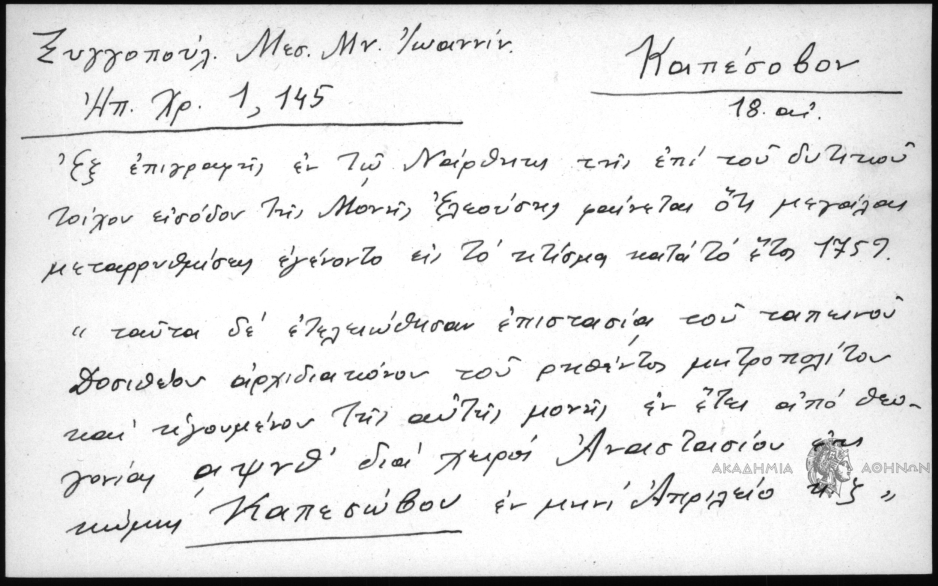 Ξυγγοπούλ. Μεσ. Μν. Ἰωαννίν.
Ἠπ. Χρ. 1, 145
Καπέσοβον
18. αἰ.
Ἐξ ἐπιγραφῆς ἐν τῷ Νάρθηκι τῆς ἐπί τοῦ δυτικοῦ
τοίχου εἰσόδου τῆς Μονῆς Ἐλεούσης φαίνεται ὅτι μεγάλαι
μεταρρυθμίσεις ἐγένοντο εἰς τό κτίσμα κατά τό ἔτος 1759.
" ταῦτα δέ ἐτελειώθησαν ἐπιστασία τοῦ ταπεινοῦ
Δοσιθέου ἀρχιδιακόνου τοῦ ρηθέντος μητροπολίτου
καί ἡγουμένου τῆς αὐτῆς μονῆς ἐν ἔτει ἀπό θεο-
γονίας αψνθ' διά χειρός Ἀναστασίου ἐκ
κώμης Καπεσώβου ἐν μηνί Ἀπριλείο "
ΑΚΑΔΗΜΙΑ ΑΘΗΝΩΝ